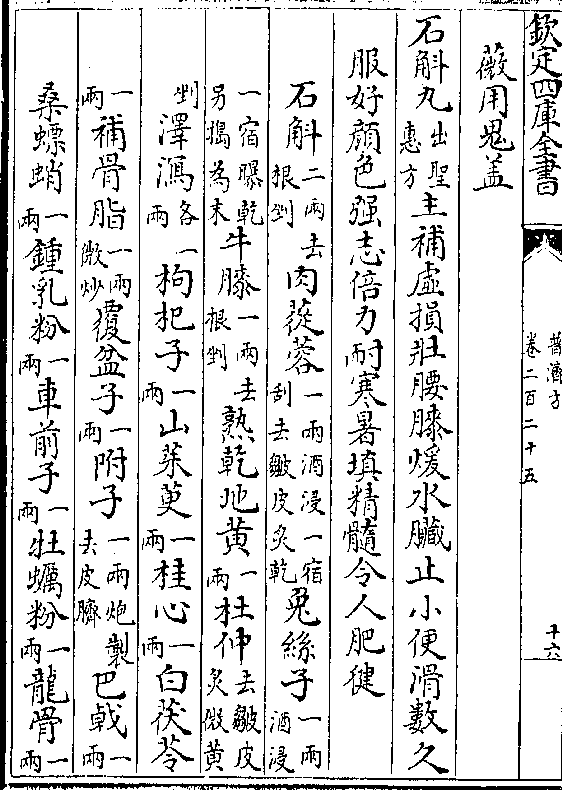 欽定四庫全書
普濟方
卷二百二十五
十六
薇用鬼盖
石斛丸出聖惠方主補虛損壯腰膝煖水臟止小便滑數久
服好顔色强志倍力耐寒暑填精髓令人肥健
石斛二兩去根剉肉蓯蓉一兩酒浸一宿刮去皺皮炙乾兔絲子一兩酒浸
一宿曝乾另搗為末牛膝一兩去根剉熟乾地黄一兩杜仲去皺皮炙微黄
剉澤瀉各一兩枸杞子一兩山茱萸一兩桂心一兩白茯苓
一兩補骨脂一兩微炒覆盆子一兩附子一兩炮製去皮臍巴戟一兩
桑螵蛸一兩鍾乳粉一兩車前子一兩牡蠣粉一兩龍骨一兩